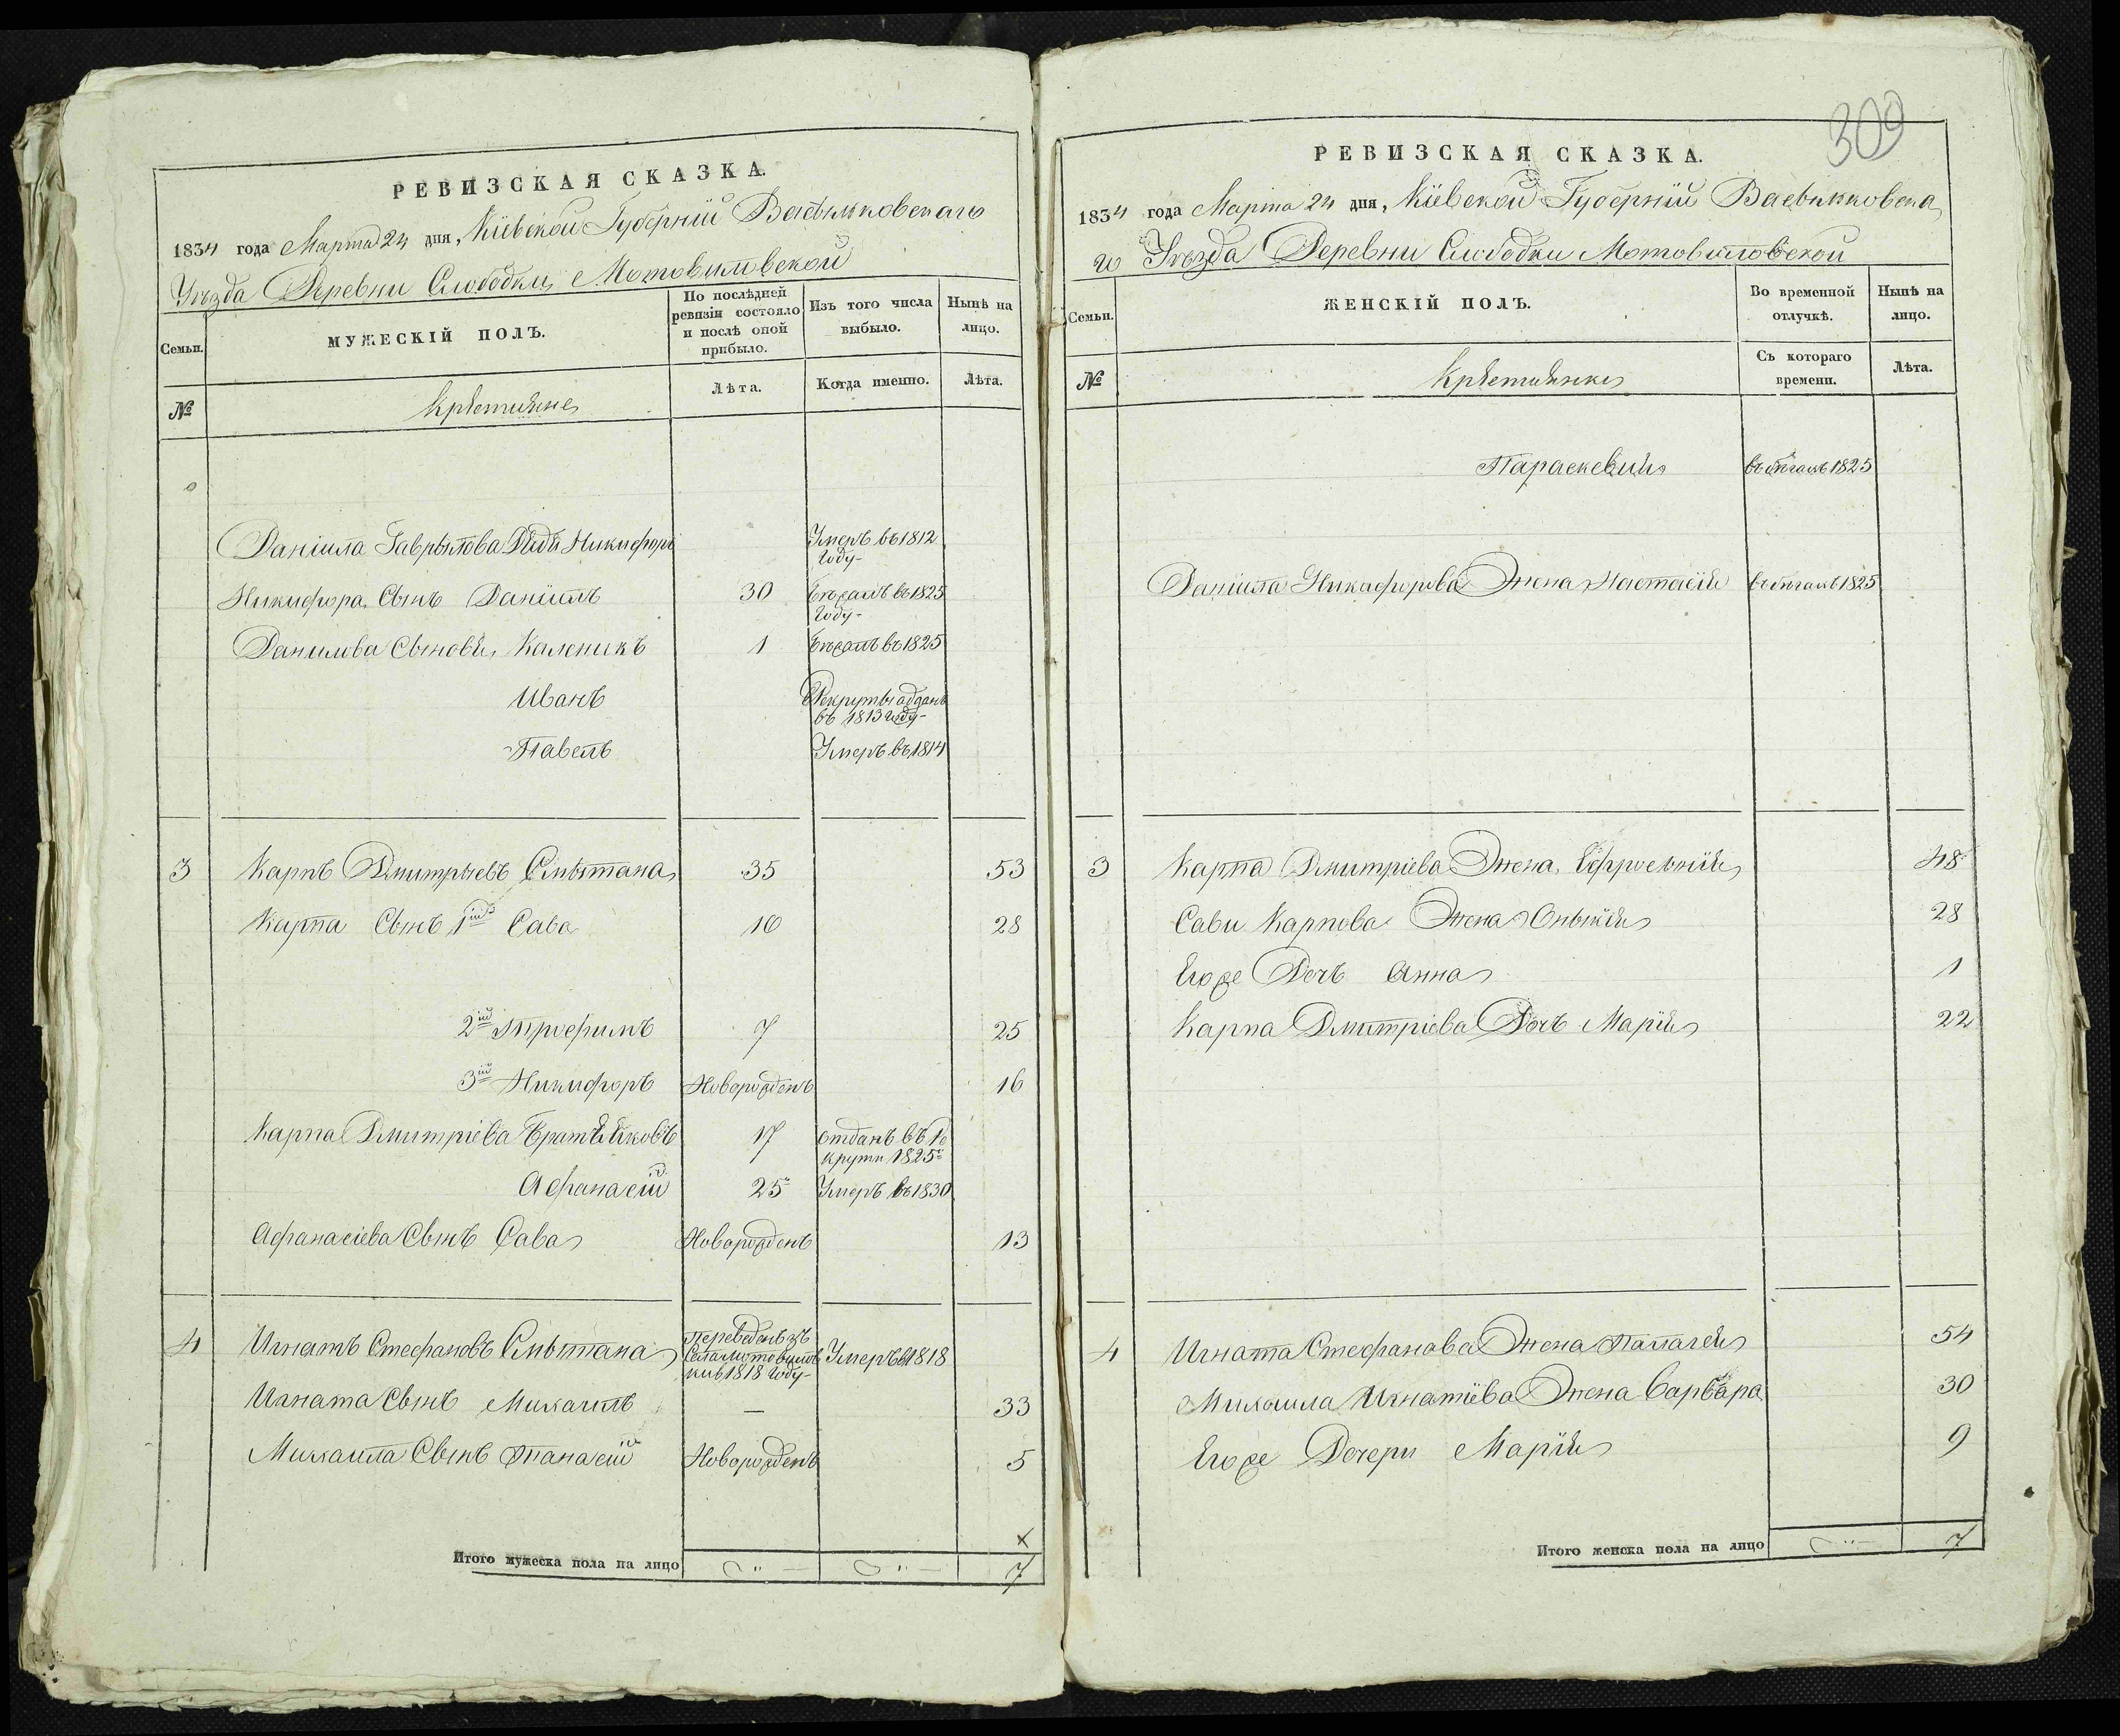 РЕВИЗСКАЯ СКАЗКА.
1834 года Марта 24 дня, Кіевской Губерніи Васильковскаго
Уѣзда Деревни Слободки Мотовиловской
Семьи.
МУЖЕСКІЙ ПОЛЪ.
По послѣдней ревизіи состояло и послѣ оной прибыло.
Изъ того числа выбыло.
Нынѣ на лицо.
№
Крестьяне
Лѣта.
Когда именно.
Лѣта.
Даніила Гаврылова Никифоръ Умеръ въ 1812 году
Никифора Сынъ Даніилъ 30 Бѣжалъ въ 1825 году
Данилова Сыновья Каленикъ 1 Бѣжалъ въ 1825
Иванъ Рекруты адданъ въ 1813 году
Павелъ Умеръ въ 1814
3 Карпъ Дмитрыевъ Смѣтана 35 53
Карпа Сынъ 1ій Сава 10 28
2ій Трофимъ 7 25
3ій Никифоръ Новорожденъ 16
Карпа Дмитріева Братья Яковъ 17 отданъ въ Ре
круты 1825
Афанасій 25 Умеръ въ 1830
Афанасіева Сынъ Сава Новорожденъ 13
4 Игнатъ Стефановъ Смѣтана Переведенъ зъ
1818 году Умеръ въ 1818
Игната Сынъ Михаилъ — 33
Михаила Сынъ Танасій Новорожденъ 5
Итого мужеска пола на лицо 7
309
РЕВИЗСКАЯ СКАЗКА.
1834 года Марта 24 дня, Кіевской Губерніи Васильковска
го Уѣзда Деревни Слободки Мотовиловской
Семьи.
ЖЕНСКІЙ ПОЛЪ.
Во временной отлучкѣ.
Нынѣ на лицо.
№
Крестьянки
Съ котораго времени.
Лѣта.
Параскевия въ бѣгахъ 1825
Даніила Никифорова Жена Настасія въ бѣгахъ 1825
3 Карпа Дмитріева Жена Ефросинія 48
Сави Карпова Жена 28
Егоже Дочь Анна 1
Карпа Дмитріева Дочь Марія 22
4 Игната Стефанова Жена Палагея 54
Михаила Игнатіева Жена Варвара 30
Егоже Дочери Марія 9
Итого женска пола на лицо 7